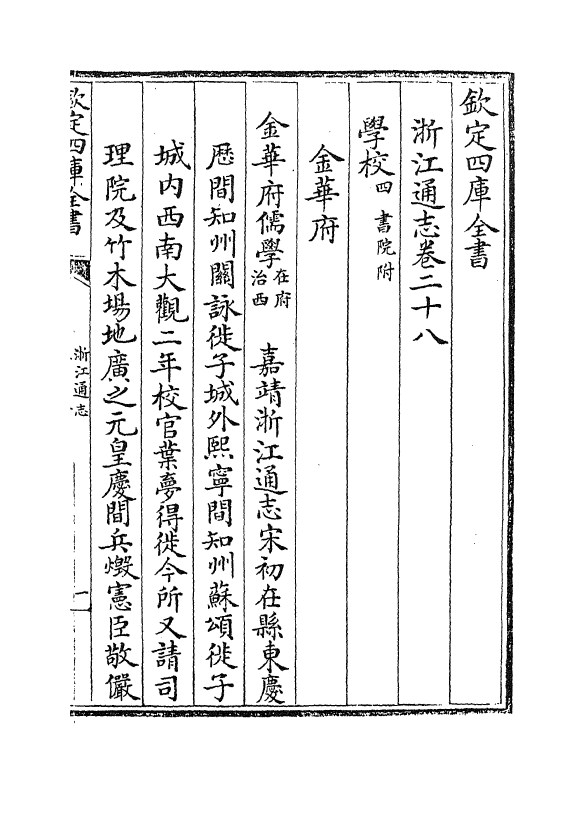 欽定四庫全書
浙江通志卷二十八
學校四 書院附
金華府
金華府儒學在府治西 嘉靖浙江通志宋初在縣東慶
厯間知州關詠徙子城外熙寧間知州蘇頌徙子
城内西南大觀二年校官葉夢得徙今所又請司
理院及竹木場地廣之元皇慶間兵燬憲臣敬儼
欽定四庫全書
浙江通志
一